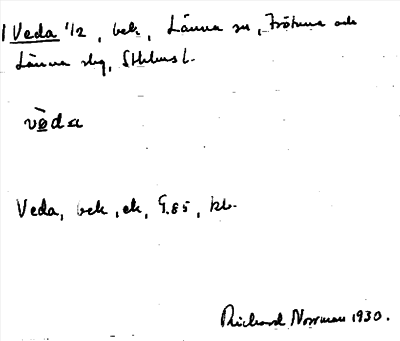 1 Veda 1/2, bek, Länna sn, Frötuna och
Länna slg, Sthlms l.
vø̀da
Veda, bek, ek, G.85, kb.
Richard Norrman 1930.